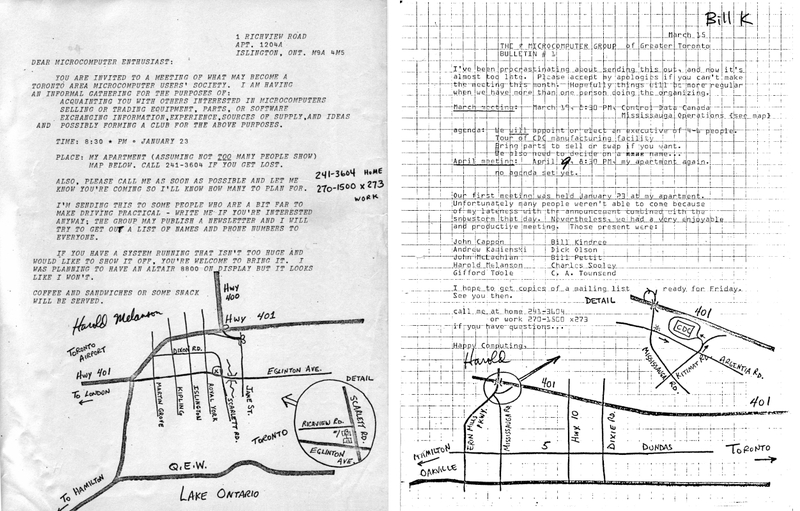 1 RICHVIEW ROAD
APT. 1204A
ISLINGTON, ONT. M9A 4M5
DEAR MICROCOMPUTER ENTHUSIAST:
YOU ARE INVITED TO A MEETING OF WHAT MAY BECOME A
TORONTO AREA MICROCOMPUTER USERS' SOCIETY. I AM HAVING
AN INFORMAL GATHERING FOR THE PURPOSES OF:
ACQUAINTING YOU WITH OTHERS INTERESTED IN MICROCOMPUTERS
SELLING OR TRADING EQUIPMENT, PARTS, OR SOFTWARE
EXCHANGING INFORMATION,EXPERIENCE,SOURCES OF SUPPLY,AND IDEAS
AND POSSIBLY FORMING A CLUB FOR THE ABOVE PURPOSES.
TIME: 8:30 * PM * JANUARY 23
PLACE: MY APARTMENT (ASSUMING NOT TOO MANY PEOPLE SHOW)
MAP BELOW. CALL 241-3604 IF YOU GET LOST.
ALSO, PLEASE CALL ME AS SOON AS POSSIBLE AND LET ME
KNOW YOU'RE COMING SO I'LL KNOW HOW MANY TO PLAN FOR.
241-3604 HOME
270-1500 x273
WORK
I'M SENDING THIS TO SOME PEOPLE WHO ARE A BIT FAR TO
MAKE DRIVING PRACTICAL - WRITE ME IF YOU'RE INTERESTED
ANYWAY; THE GROUP MAY PUBLISH A NEWSLETTER AND I WILL
TRY TO GET OUT A LIST OF NAMES AND PHONE NUMBERS TO
EVERYONE.
IF YOU HAVE A SYSTEM RUNNING THAT ISN'T TOO HUGE AND
WOULD LIKE TO SHOW IT OFF, YOU'RE WELCOME TO BRING IT. I
WAS PLANNING TO HAVE AN ALTAIR 8800 ON DISPLAY BUT IT LOOKS
LIKE I WON'T.
COFFEE AND SANDWICHES OR SOME SNACK
WILL BE SERVED.
Harold Melanson
HWY 400
HWY 401
TORONTO AIRPORT
DIXON RD.
HWY 401
EGLINTON AVE.
TO LONDON
MARTIN GROVE
KIPLING
ISLINGTON
ROYAL YORK
SCARLETT RD.
JANE ST.
DETAIL
SCARLETT RD.
RICHVIEW RD.
#1
EGLINTON AVE.
TORONTO
Q.E.W.
TO HAMILTON
LAKE ONTARIO
Bill K
March 15
THE # MICROCOMPUTER GROUP of Greater Toronto
BULLETIN # 1
I've been procrastinating about sending this out, and now it's
almost too late. Please accept my apologies if you can't make
the meeting this month. Hopefully things will be more regular
when we have more than one person doing the organizing.
March meeting: March 19, 8:30 PM, Control Data Canada
Mississauga Operations (see map)
agenda: We will appoint or elect an executive of 4-6 people.
Tour of CDC manufacturing facility
Bring parts to sell or swap if you want.
We also need to decide on a name...
April meeting: April 9, 8:30 PM, my apartment again.
no agenda set yet.
Our first meeting was held January 23 at my apartment.
Unfortunately many people weren't able to come because
of my lateness with the announcement combined with the
snowstorm that day. Nevertheless, we had a very enjoyable
and productive meeting. Those present were:
John Cappon Bill Kindree
Andrew Kagienski Dick Olson
John McLachlan Bill Pettit
Harold Melanson Charles Sooley
Gifford Toole C. A. Townsend
I hope to get copies of a mailing list ready for Friday.
See you then.
call me at home 241-3604
or work 270-1500 x273
if you have questions...
Happy Computing,
Harold
DETAIL
401
CDC
MISSISSAUGA RD.
KITIMAT RD.
ARGENTIA RD.
401
401
ERIN MILLS PKWY.
MISSISSAUGA RD.
HWY 10
DIXIE RD.
HAMILTON
5
DUNDAS
TORONTO
OAKVILLE